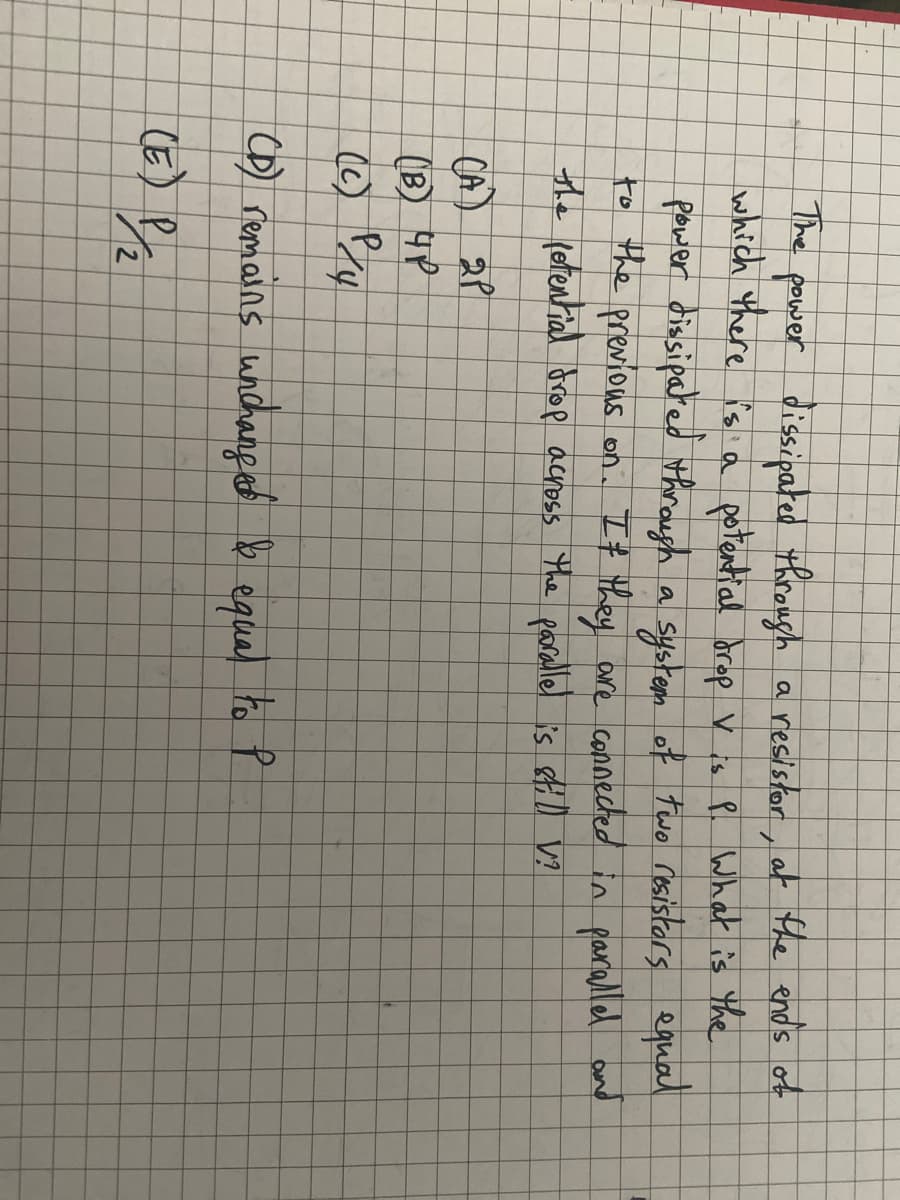 The power dissipated through a resistor, at the ends of
which there is a potential drop V is P. What is the
power dissipated through a system of two resistors equal
to the previous on. If they are connected in parallel and
the potential drop across the parallel is still V?
(A) 2P
(B) 4P
(C) P/4
(D) remains unchanged & equal to P
(E) P/2